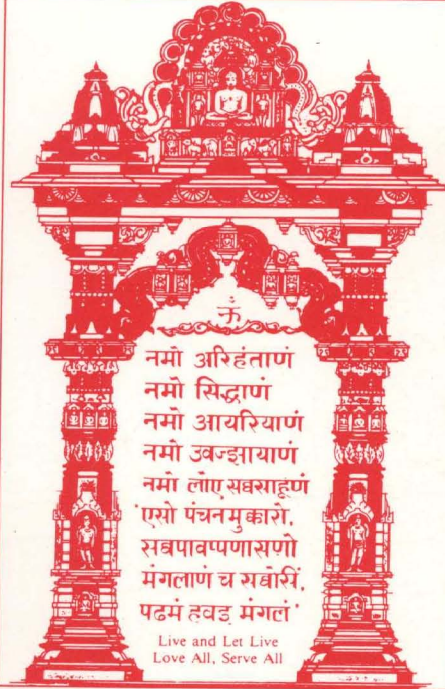 ॐ
नमो अरिहंताणं
नमो सिद्धाणं
नमो आयरियाणं
नमो उवज्झायाणं
नमो लोए सव्वसाहूणं
'एसो पंचनमुक्कारो,
सव्वपावप्पणासणो
मंगलाणं च सव्वेसिं,
पढमं हवइ मंगलं'
Live and Let Live
Love All, Serve All